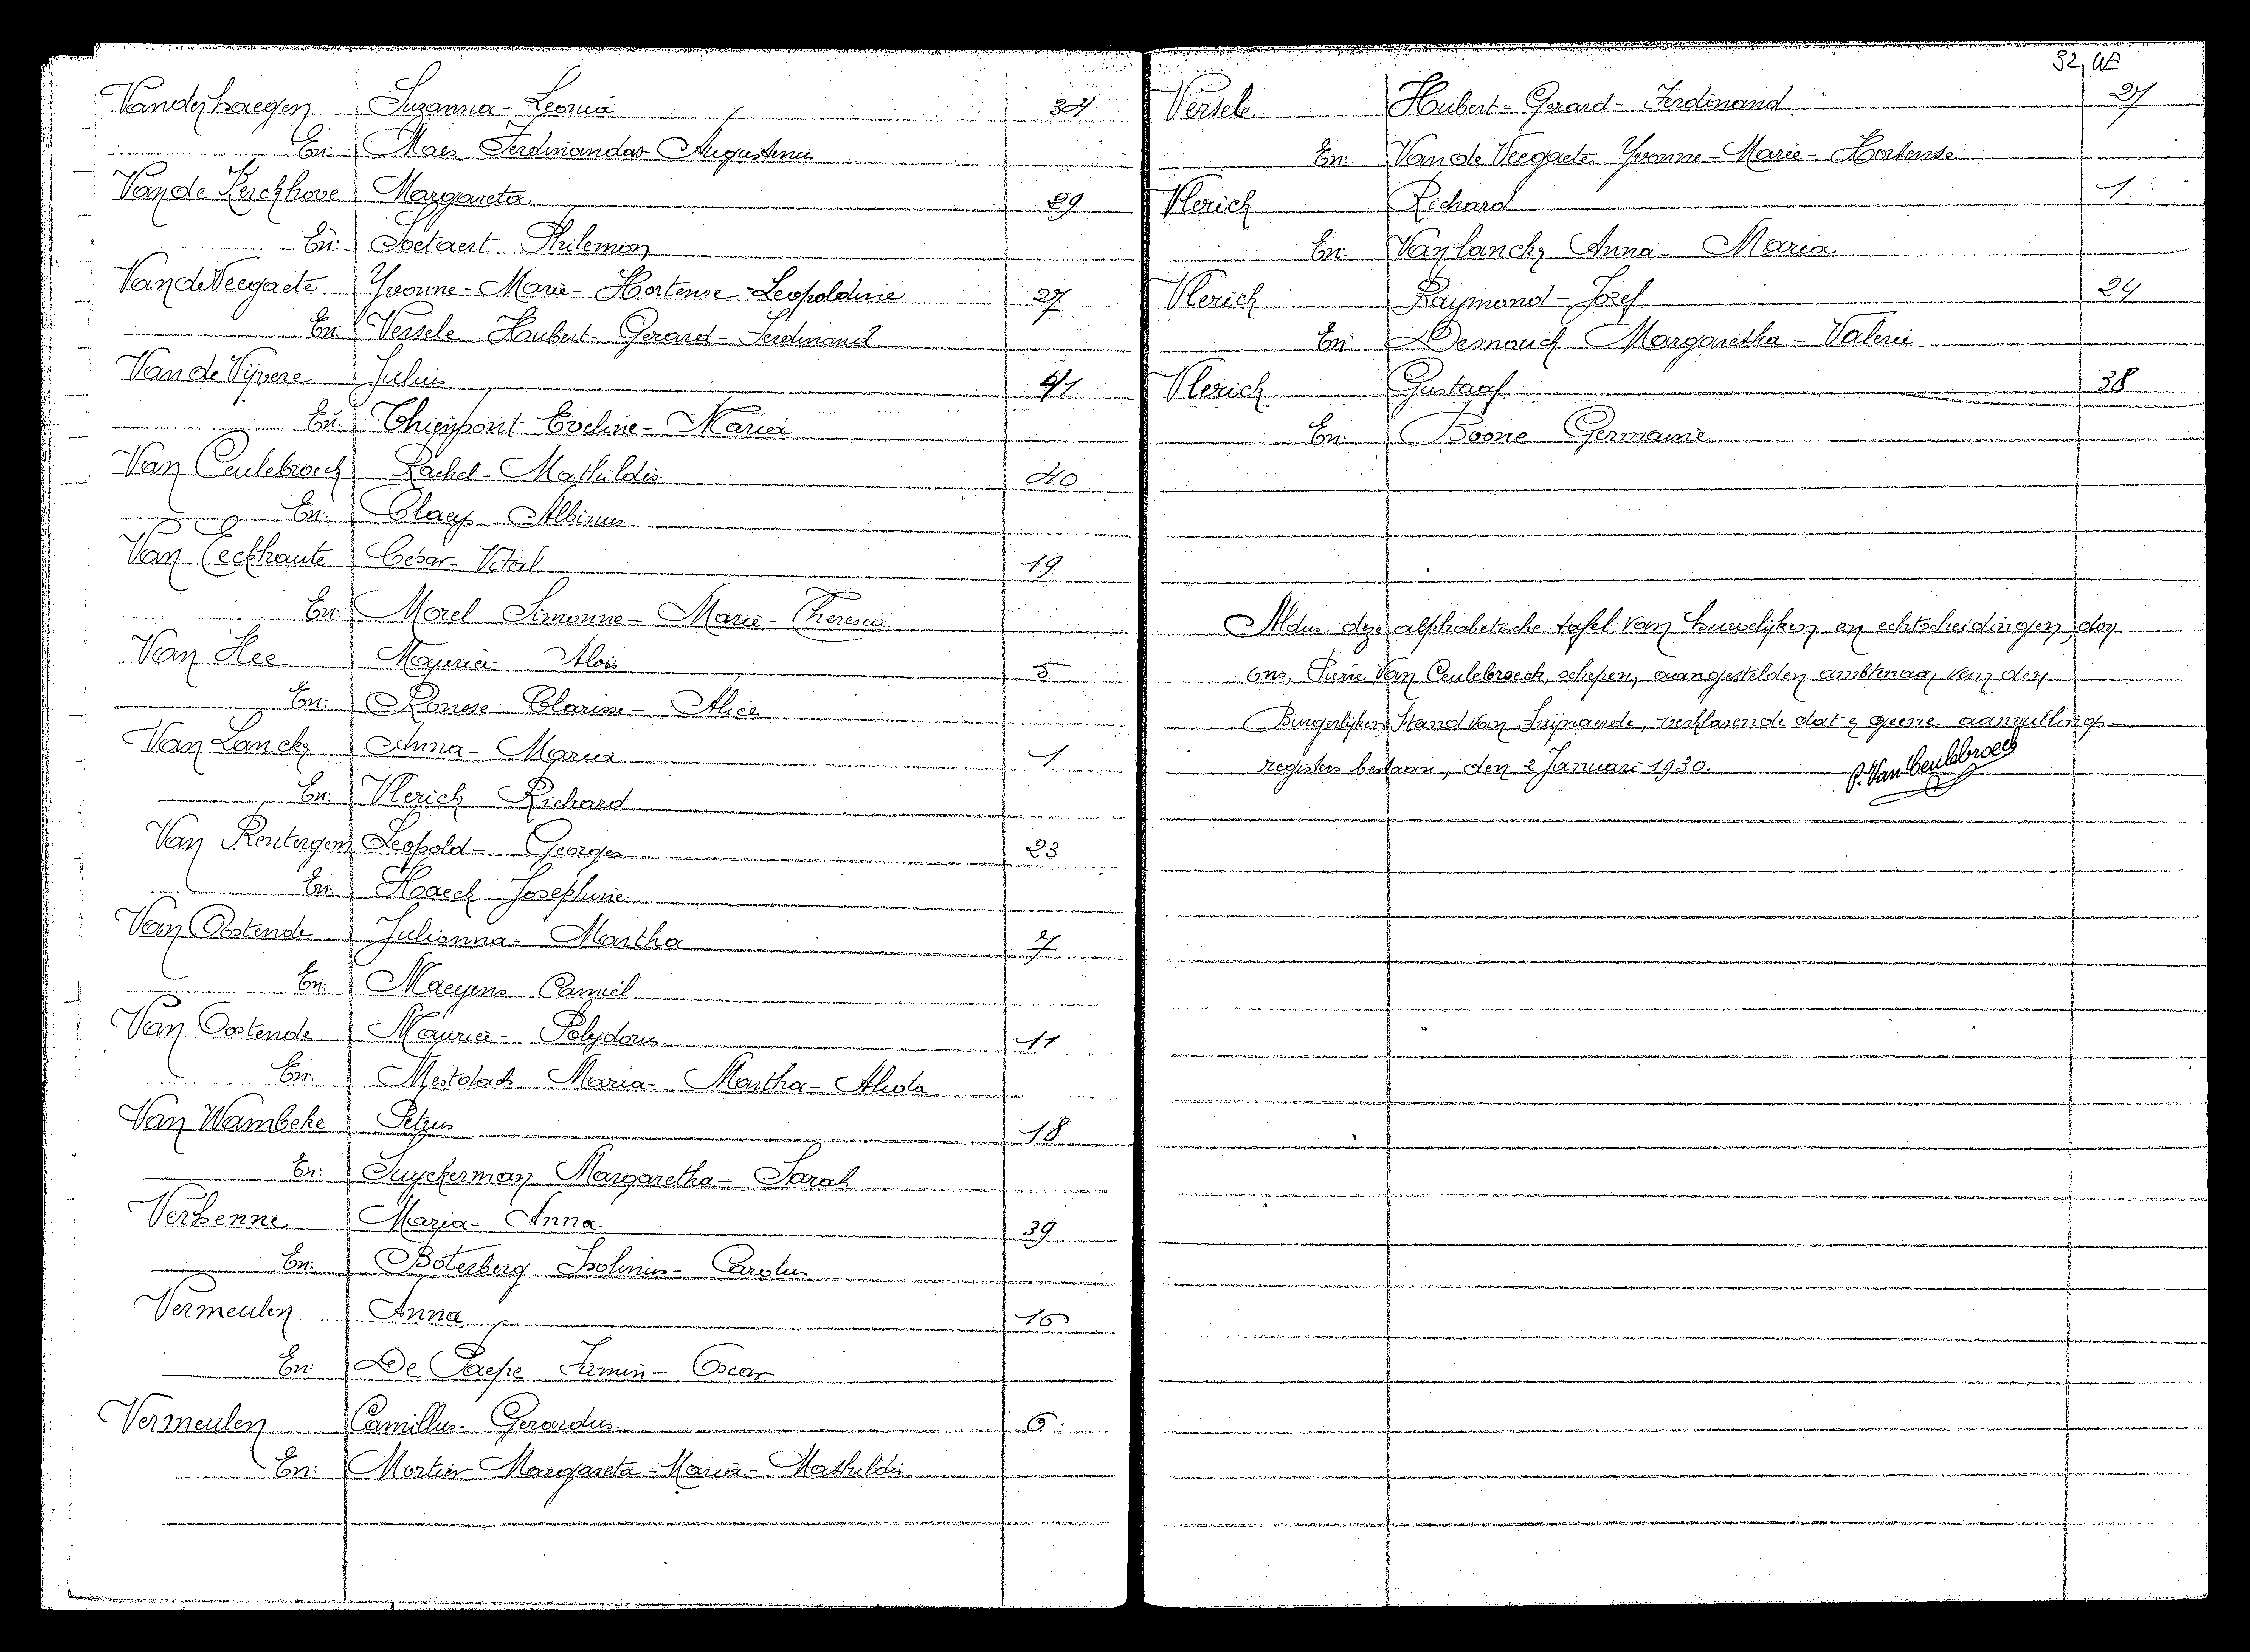 Vanderhaegen Suzanna-Leonia 34
En: Maes Ferdinandus Augustinus
Van de Kerckhove Margareta 29
En: Soetaert Philemon
Van de Veegaete Yvonne-Marie-Hortense-Leopoldine 27
En: Versele Hubert-Gerard-Ferdinand
Van de Vijvere Julius 41
En: Thienpont Eveline-Maria
Van Ceulebroeck Rachel-Mathildis 40
En: Claeys Albinus
Van Eeckhaute César-Vital 19
En: Morel Simonne-Marie-Theresia
Van Hee Maurice Alois 5
En: Ronsse Clarisse-Alice
Van Lancky Anna-Maria 1
En: Vlerick Richard
Van Renterghem Leopold-Georges 23
En: Haeck Josephine
Van Oostende Julianna-Martha 7
En: Maeyens Camiel
Van Oostende Maurice-Polydorus 11
En: Mestdach Maria-Martha-Alida
Van Wambeke Petrus 18
En: Suyckerman Margaretha-Sarah
Verhenne Maria-Anna 39
En: Boterberg Isolinus-Carolus
Vermeulen Anna 16
En: De Paepe Firmin-Oscar
Vermeulen Camillus-Gerardus 6
En: Mortier Margareta-Maria-Mathildis
32
Versele Hubert-Gerard-Ferdinand 27
En: Van de Veegaete Yvonne-Marie-Hortense
Vlerick Richard 1
En: Van lancky Anna-Maria
Vlerick Raymond-Jozef 24
En: Desnouck Margaretha-Valerie
Vlerick Gustaaf 38
En: Boone Germaine
Aldus deze alphabetische tafel van huwelijken en echtscheidingen, door
ons, Pierre Van Ceulebroeck, schepen, aangestelden ambtenaar van den
Burgerlijken Stand van Zwijnaarde, verklarende dat er geene aanvullings-
registers bestaan, den 2 Januari 1930.
P. Van Ceulebroeck